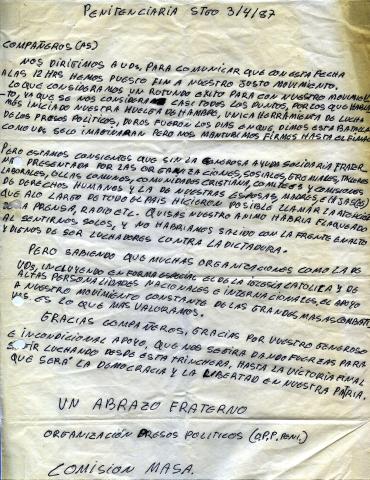 PENITENCIARIA STGO 3/4/87
COMPAÑEROS (AS)
NOS DIRIGIMOS A UDS, PARA COMUNICAR QUE CON ESTA FECHA
A LAS 12 HRS HEMOS PUESTO FIN A NUESTRO JUSTO MOVIMIENTO.
LO QUE CONSIDERAMOS UN ROTUNDO EXITO PARA CON NUESTRO MOVIMIEN-
TO, YA QUE SE NOS CONSIDERA CASI TODOS LOS PUNTOS, POR LOS QUE HABIA-
MOS INICIADO NUESTRA HUELGA DE HAMBRE, UNICA HERRAMIENTA DE LUCHA
DE LOS PRESOS POLITICOS, DUROS FUERON LOS DIAS EN QUE, DIMOS ESTA BATALLA
COMO UDS SE LO IMAGINARAN PERO NOS MANTUBIMOS FIRMES HASTA EL FINAL
PERO ESTAMOS CONSIENTES QUE SIN LA GENEROSA AYUDA SOLIDARIA FRATER-
NA PRESENTADA POR LAS ORGANIZACIONES, SOSIALES, GREMIALES, TALLERES
LABORALES, OLLAS COMUNES, COMUNIDADES CRISTIANA, COMITEES Y COMISIONES
DE DERECHOS HUMANOS Y LA DE NUESTRAS ESPOSAS, MADRES, E HIJAS(OS)
QUE A LO LARGO DE TODO EL PAIS HICIERON POSIBLE LLAMAR LA ATENCION
DE LA PRENSA, RADIO ETC. QUISAS NUESTRO ANIMO HABRIA FLAQUEADO
AL SENTIRNOS, SOLOS, Y NO HABRIAMOS SALIDO CON LA FRENTE EN ALTO
Y DIGNOS DE SER LUCHADORES CONTRA LA DICTADURA.
PERO SABIENDO QUE MUCHAS ORGANIZACIONES COMO LA DE
UDS, INCLUYENDO EN FORMA ESPECIAL EL DE LA IGLESIA CATOLICA Y DE
ALTAS PERSONALIDADES NACIONALES E INTERNACIONALES, EL APOYO
A NUESTRO MOVIMIENTO CONSTANTE DE LAS GRANDES MASAS COMBATI
VAS. ES LO QUE MAS VALORAMOS.
GRACIAS COMPAÑEROS, GRACIAS POR VUESTRO GENEROSO
E INCONDICIONAL APOYO, QUE NOS SEGIRA DANDO FUERZAS PARA
SEGIR LUCHANDO DESDE ESTA TRINCHERA, HASTA LA VICTORIA FINAL
QUE SERA LA DEMOCRACIA Y LA LIBERTAD EN NUESTRA PATRIA.
UN ABRAZO FRATERNO
ORGANIZACIÓN PRESOS POLITICOS (O.P.P. PENI.)
COMISION MASA.